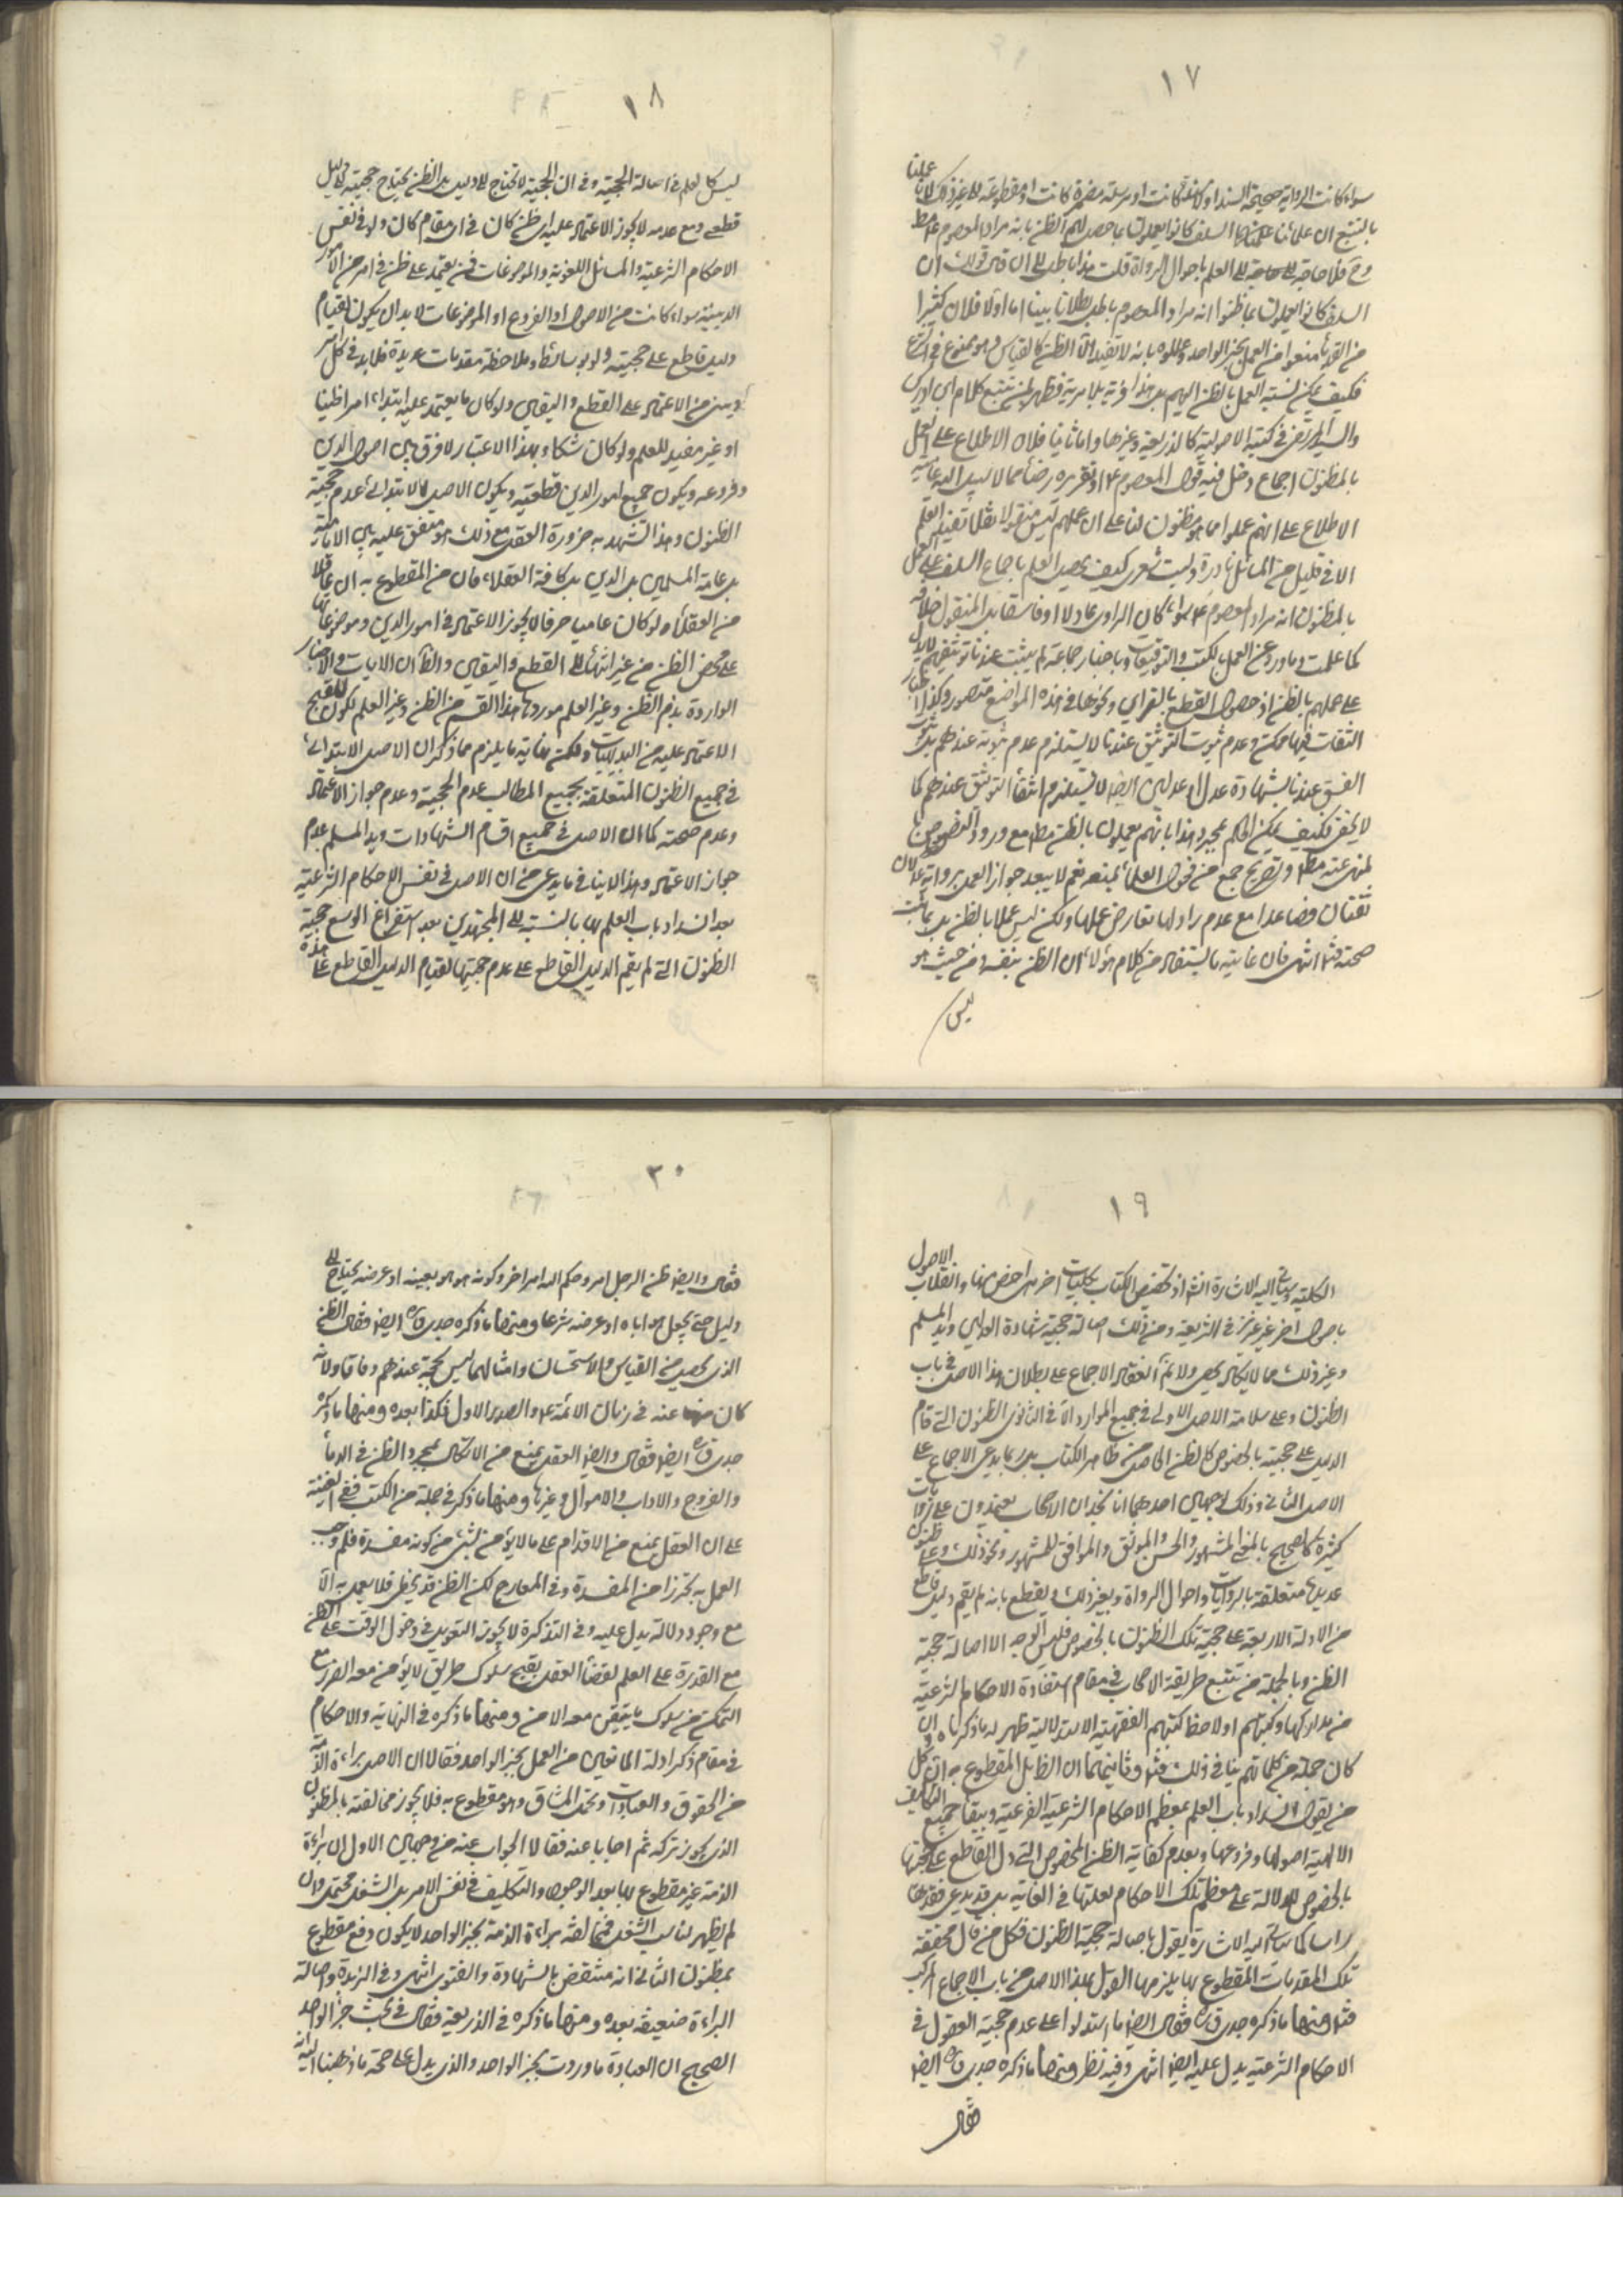 ١٧
سواء كانت الرواية صحيحة السند او لا مسندة كانت او مرسلة مضمرة كانت او مقطوعة الى غير ذلك لانا علمنا
بالتتبع ان علمائنا السلف كانوا يعملون بما حصل لهم الظن بانه مراد المعصوم ع
وح فلا حاجة الى العلم باحوال الرواة قلت هذا باطل الى ان قال قولك ان
السلف كانوا يعملون بما ظنوا انه مراد المعصوم باطل بطلانا بينا اما اولا فلان كثيرا
من القدماء منعوا من العمل بخبر الواحد وعللوه بانه لا يفيد الا الظن كالقياس وهو ممنوع في الشرع
فكيف يمكن نسبة العمل بالظن اليهم بل هذا فرية بلا مرية فظهر لمن تتبع كلام ابن ادريس
والسيد المرتضى في كتبه الاصولية كالذريعة وغيرها واما ثانيا فلان الاطلاع على العمل
بالمظنون اجماع دخل فيه قول المعصوم ع او تقريره رضاء مما لا سبيل اليه غايته
الاطلاع على انهم عملوا بما هو مظنون لنا على ان عملهم ليس منقولا نقلا يفيد العلم
الا في قليل من المسائل نادرة وليت شعري كيف يحصل العلم باجماع السلف على العمل
بالمظنون انه مراد المعصوم ع سواء كان الراوي عادلا او فاسقا بل المنقول خلافه
كما علمت وما ورد عن العمل بالكتب والتوقيعات وباخبار جماعة لم يثبت عندنا توثيقهم لا يدل
على عملهم بالظن اذ حصول القطع بالقراين ونحوها في هذه المواضع متصور وكذا اخبار
الثقات فيها ممكن وعدم ثبوت التوثيق عندنا لا يستلزم عدم ثبوته عندهم بل ثبوت
الفسق عندنا بشهادة عدل او عدلين ايضا لا يستلزم انتفاء التوثيق عندهم كما
لا يخفى فكيف يمكن الحكم بمجرد هذا بانهم يعملون بالظن مط مع ورود النصوص
لمنعه مط وتصريح جمع من فحول العلماء بمنعه نعم لا يبعد جواز العمل برواية عدلان
ثقتان فصاعدا مع عدم راد لها تعارض عملها ولكن ليس عملا بالظن بل بما ثبت
صحته فتدبر انتهى فان غاية ما يستفاد من كلام هؤلاء ان الظن بنفسه ومن حيث هو
ليس
١٨
ليس كالعلم في اصالة الحجية وفي ان الحجية لا تحتاج الى دليل بل الظن يحتاج حجيته الى دليل
قطعي ومع عدمه لا يجوز الاعتماد عليه اي ظن كان في اي مقام كان ولو في نفس
الاحكام الشرعية والمسائل اللغوية والموضوعات فمن يعتمد على ظن في امر من الامور
الدينية سواء كانت من الاصول او الفروع او الموضوعات لا بد ان يكون لقيام
دليل قاطع على حجيته ولو بوسائط وملاحظة مقدمات عديدة فلا بد في كل امر
ديني من الاعتماد على القطع واليقين ولو كان ما يعتمد عليه ابتداء امرا ظنيا
او غير مفيد للعلم ولو كان شكا وبهذا الاعتبار لا فرق بين اصول الدين
وفروعه ويكون جميع امور الدين قطعية ويكون الاصل الابتدائي عدم حجية
الظنون وهذا تشهد به ضرورة العقل مع ذلك هو متفق عليه بين الامامية
بل عامة المسلمين بل الدين بل كافة العقلاء فان من المقطوع به ان عاقلا
من العقلاء ولو كان عاميا صرفا لا يجوز الاعتماد في امور الدين وموضوعاتها
على محض الظن من غير انتهاء الى القطع واليقين والظ ان الايات والاخبار
الواردة بذم الظن وغير العلم موردها هذا القسم من الظن وغير العلم لكون القبح
الاعتماد عليه من البديهيات ولكن غاية ما يلزم مما ذكر ان الاصل الابتدائي
في جميع الظنون المتعلقة بجميع المطالب عدم الحجية وعدم جواز الاعتماد
وعدم صحته كما ان الاصل في جميع اقسام الشهادات ويد المسلم عدم
جواز الاعتماد وهذا لا ينافي ما يدعى من ان الاصل في نفس الاحكام الشرعية
بعد انسداد باب العلم بها بالنسبة الى المجتهدين بعد استفراغ الوسع حجية
الظنون التي لم يقم الدليل القاطع على عدم حجيتها لقيام الدليل القاطع على هذه
١٩
الكلية وسيأتي اليه الاشارة انش اذ تخصيص الكتاب بكليات اخر اخص منها وانقلاب الاصول
باصول اخر غير عزيز في الشريعة ومن ذلك اصالة حجية شهادة العدلين ويد المسلم
وغير ذلك مما لا يكاد يحصى ولا ثم انعقاد الاجماع على بطلان هذا الاصل في باب
الظنون وعلى سلامة الاصل الاولي في جميع الموارد الا في الثانوي الظنون التي قام
الدليل على حجيته بالخصوص كالظن الحاصل من ظاهر الكتاب بل ربما يدعى الاجماع على
الاصل الثاني وذلك لوجهين احدهما انا نجد ان الاصحاب يعتمدون على روايات
كثيرة كالصحيح بالمعنى المشهور والحسن والموثق والموافق للمشهور ونحو ذلك وعلى ظنون
عديدة متعلقة بالروايات واحوال الرواة وبغير ذلك ويقطع بانه لم يقم دليل قاطع
من الادلة الاربعة على حجية تلك الظنون بالخصوص فليس الوجه الا اصالة حجية
الظن وبالجملة من تتبع طريقة الاصحاب في مقام استفادة الاحكام الشرعية
من مداركها وكتبهم او لاحظ كتبهم الفقهية الاستدلالية ظهر له ما ذكرناه وان
كان جملة من كلماتهم ينافي ذلك فتدبر وثانيهما ان الظاهر بل المقطوع به ان كل
من يقول بانسداد باب العلم بمعظم الاحكام الشرعية الفرعية وببقاء جميع التكاليف
الالهية اصولها وفروعها وبعدم كفاية الظن المخصوص التي دل القاطع على حجيتها
بالخصوص للدلالة على معظم تلك الاحكام لقلتها في الغاية بل قد يدعى فقدها
راسا كما سيأتي اليه الاشارة يقول باصالة حجية الظنون فكل من قال بحقيقة
تلك المقدمات المقطوع بها يلزمها القول بهذا الاصل من باب الاجماع المركب
فتدبر ومنها ما ذكره جدي قدس سره فقال ايضا ما استدلوا على عدم حجية العقول في
الاحكام الشرعية يدل عليه ايضا انتهى وفيه نظر ومنها ما ذكره جدي قدس سره ايضا
فقال
٢٠
فقال وايضا ظن الرجل امر وحكم الله امر اخر وكونه هو هو بعينه او عوضه يحتاج الى
دليل حتى يجعل هو اياه او عوضه شرعا ومنها ما ذكره جدي قدس سره ايضا فقال الظن
الذي يحصل من القياس والاستحسان وامثالهما ليس بحجة عندهم وفاقا ولانه
كان منهيا عنه في زمان الائمة ع والصدر الاول فكذا بعده ومنها ما ذكره
جدي قدس سره ايضا فقال وايضا العقل يمنع من الاتكال بمجرد الظن في الدماء
والفروج والاداب والاموال وغيرها ومنها ما ذكر في جملة من الكتب ففي الغنية
على ان العقل يمنع من الاقدام على ما لا يؤمن الشيء من كونه مفسدة فلم وجب
العمل به تحرزا من المفسدة وفي المعارج لكن الظن قد يخطي فلا يعمل به الا
مع وجود دلالة يدل عليه وفي التذكرة لا يجوز التعويل في دخول الوقت على الظن
مع القدرة على العلم لقضاء العقل بقبح سلوك طريق لا يؤمن معه الضرر مع
التمكن من سلوك ما يتيقن معه الامن ومنها ما ذكره في النهاية والاحكام
في مقام ذكر ادلة المانعين من العمل بخبر الواحد فقالا ان الاصل براءة الذمة
من الحقوق والعبادات وتحمل المشاق وهو مقطوع به فلا يجوز مخالفته بالمظنون
الذي يجوز تركه ثم اجابا عنه فقالا الجواب عنه من وجهين الاول ان براءة
الذمة غير مقطوع بها بعد الوجود والتكليف في نفس الامر بل الشغل محتمل وان
لم يظهر لنا سبب الشغل فمخالفة براءة الذمة بخبر الواحد لا يكون رفع مقطوع
بمظنون الثاني انه منتقض بالشهادة والفتوى انتهى وفي الزبدة واصالة
البراءة ضعيفة بعده ومنها ما ذكره في الذريعة فقال في بحث خبر الواحد
الصحيح ان العبادة ما وردت بخبر الواحد والذي يدل على صحة ما ذهبنا اليه انه